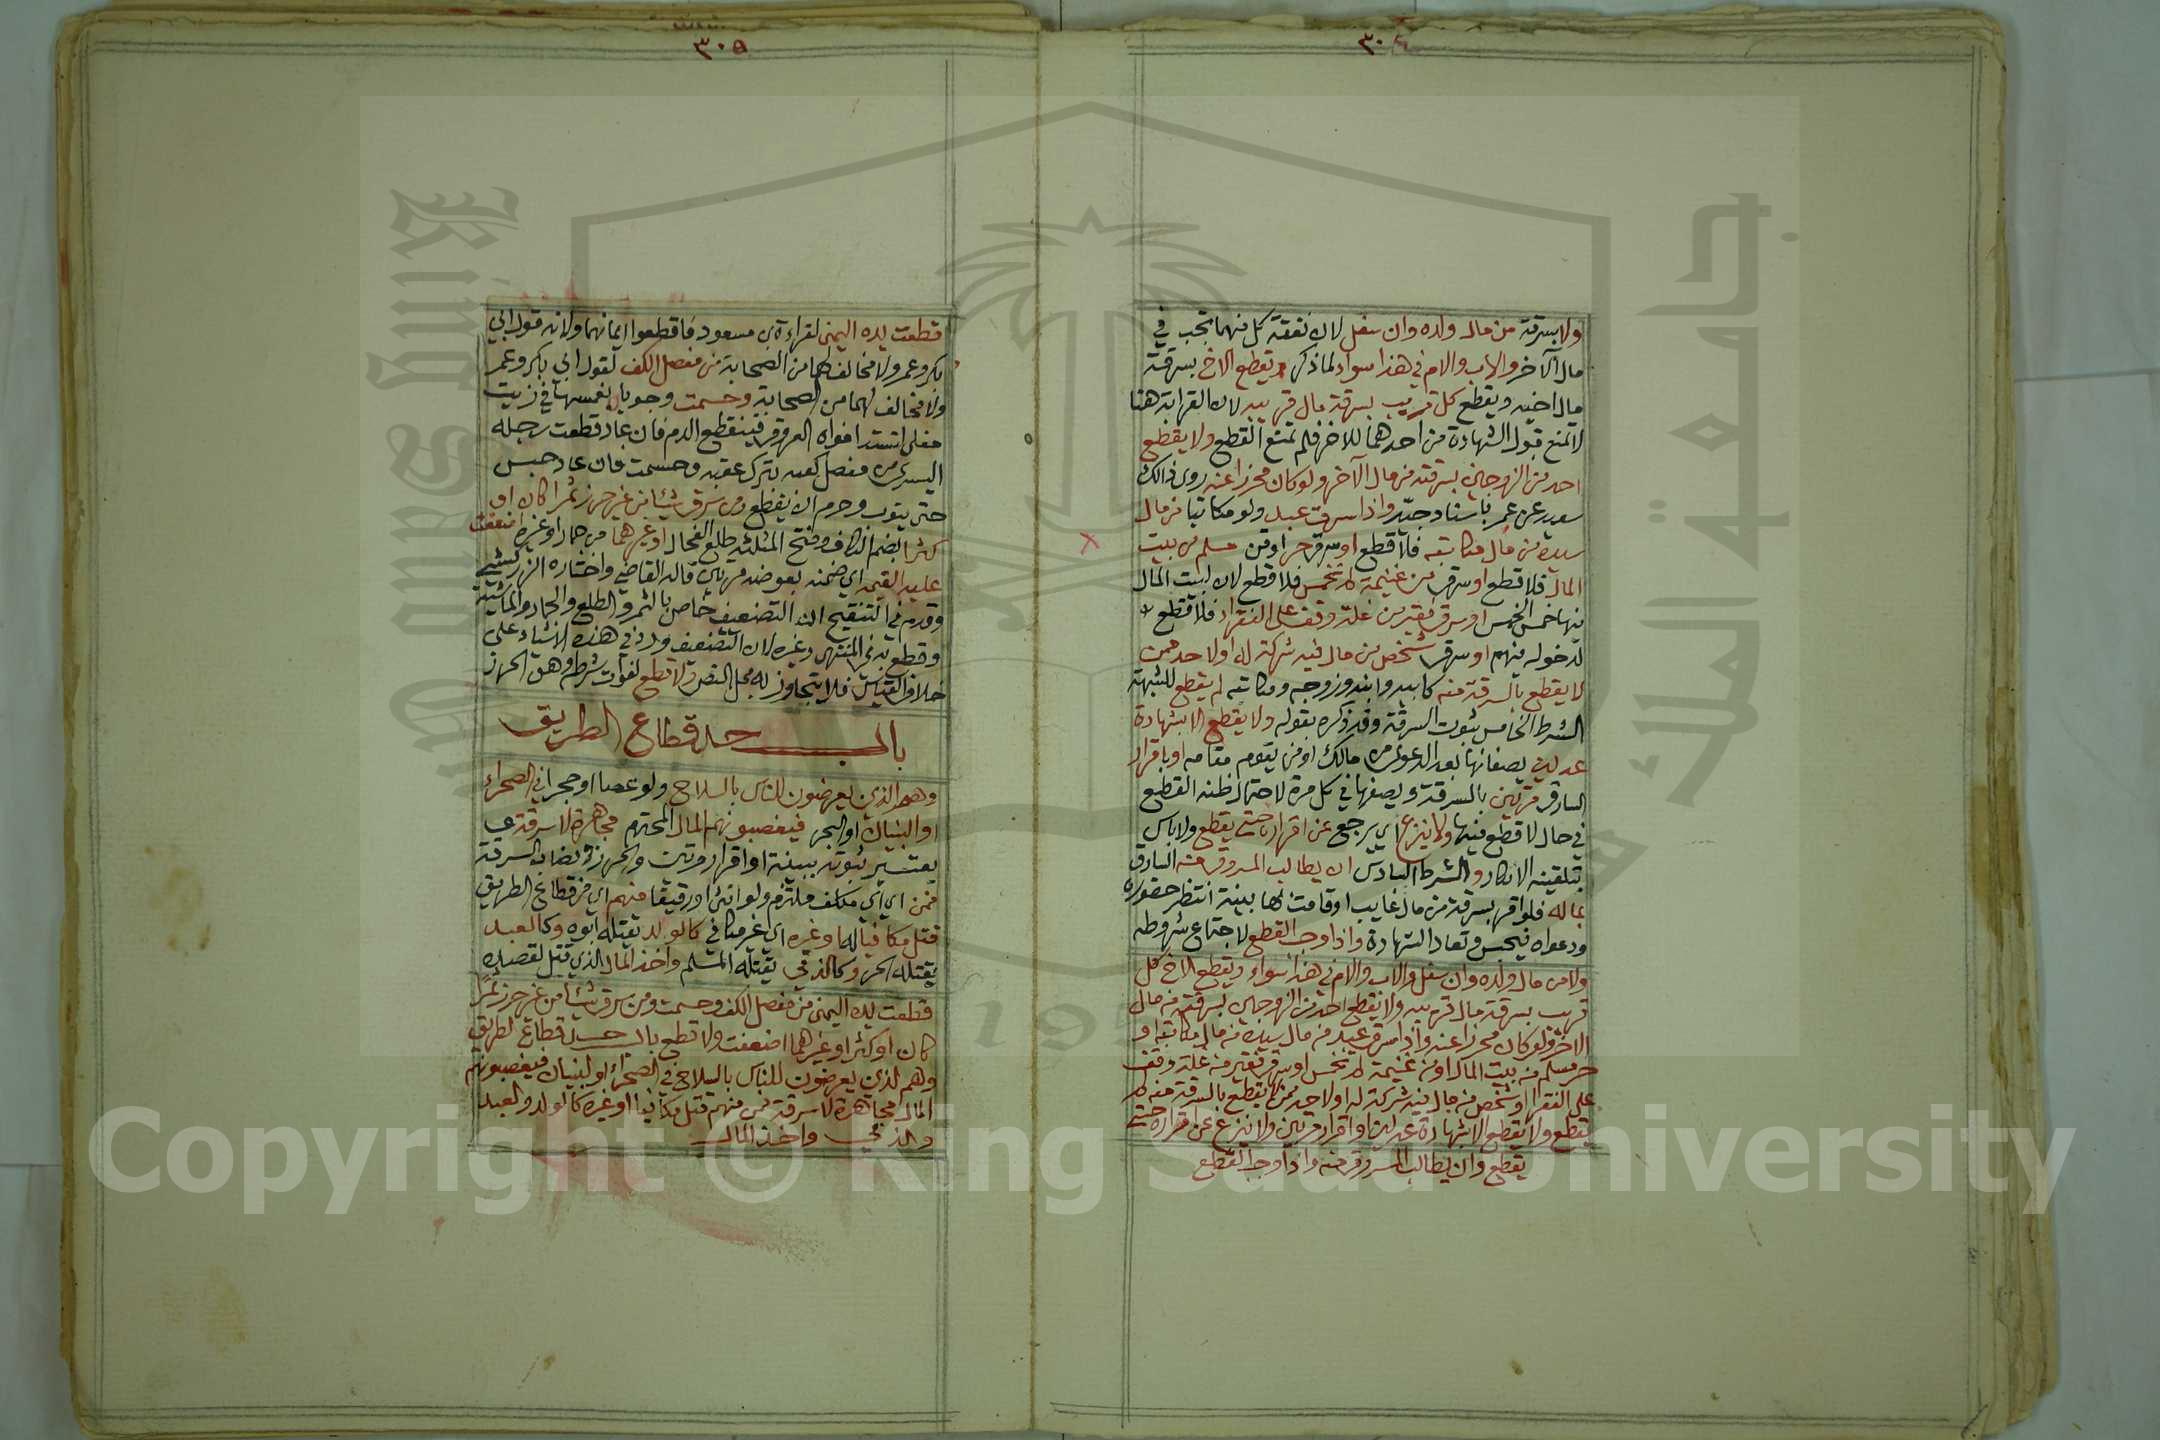 ٣٠٤
ولا بسرقة من مال ولده وان سفل لان نفقة كل منهما تجب في
مال الآخر والاب والام في هذا سواء لما ذكر ويقطع الاخ بسرقة
مال اخيه ويقطع كل قريب بسرقة مال قريبه لان القرابة هنا
لا تمنع قبول الشهادة من احدهما للاخر فلم تمنع القطع ولا يقطع
احد من الزوجين بسرقته من مال الآخر ولو كان محرزا عنه روى ذالك
سعيد عن عمر باسناد جيد واذا سرق عبد ولو مكاتبا من مال
سيده من مال مكاتبه فلا قطع او سرق حر او قن مسلم من بيت
المال فلا قطع او سرق من غنيمة لم تخمس فلا قطع لان لبيت المال
فيها خمس الخمس او سرق فقير من غلة وقف على الفقراء فلا قطع
لدخوله فيهم او سرق شخص من مال فيه شركة له او لاحد ممن
لا يقطع بالسرقة منه كابيه وابنه وزوجه ومكاتبه لم يقطع للشبهة
الشرط الخامس ثبوت السرقة وقد ذكره بقوله ولا يقطع الا بشهادة
عدلين يصفانها بعد الدعوى من مالك او من يقوم مقامه او باقرار
السارق مرتين بالسرقة ويصفها في كل مرة لاحتمال ظنه القطع
في حال لا قطع فيها ولا ينزع اي يرجع عن اقراره حتى يقطع ولا باس
بتلقينه الانكار والشرط السادس ان يطالب المسروق منه السارق
بماله فلو اقر بسرقة من مال غايب او قامت بها بينة انتظر حضوره
ودعواه فيحبس وتعاد الشهادة واذا وجب القطع لاجتماع شروطه
ولا من مال ولده وان سفل والاب والام في هذا سواء ويقطع الاخ كل
قريب بسرقة مال قريبه ولا يقطع احد من الزوجين بسرقته من مال
الاخر ولو كان محرزا عنه واذا سرق عبد من مال سيده من مال مكاتبه او
حر مسلم من بيت المال او من غنيمة لم تخمس او سرق فقير من غلة وقف
على الفقراء او شخص من مال فيه شركة له او لاحد ممن لا يقطع بالسرقة منه لم
يقطع ولا يقطع الا بشهادة عدلين او اقرار مرتين ولا ينزع عن اقراره حتى
يقطع وان يطالب المسروق منه واذا وجب القطع
٣٠٥
قطعت يده اليمنى لقراءة بن مسعود فاقطعوا ايمانهما ولانه قول ابي
بكر وعمر ولا مخالف لهما من الصحابة من مفصل الكف لقول ابي بكر وعمر
ولا مخالف لهما من الصحابة وحسمت وجوبا بغمسها في زيت
مغلى لتستد افواه العروق فينقطع الدم فان عاد قطعت رجله
اليسرى من مفصل كعبه بترك عقبه وحسمت فان عاد حبس
حتى يتوب وحرم ان يقطع ومن سرق شيئا من غير حرز ثمرا كان او
كثرا بضم الكاف وفتح المثلثه طلع الفحال او غيرهما من جمار او غيره اضعفت
عليه القيمة اي ضمنه بعوضه مرتين قاله القاضي واختاره الزركشي
وقدم في التنقيح ان التضعيف خاص بالثمر والطلع والجمار والماشية
وقطع به في المنتهى وغيره لان التضعيف ورد في هذه الاشياء على
خلاف القياس فلا يتجاوز به محل النص ولا قطع لفوات شرطه وهو الحرز
باب حد قطاع الطريق
وهم الذين يعرضون للناس بالسلاح ولو عصا او حجرا في الصحراء
او البنيان او البحر فيغصبونهم المال المحترم مجاهرة لا سرقة
يعتبر ثبوته ببينة او اقرار مرتين والحرز ونصاب السرقة
فمن اي اي مكلف ملتزم ولو انثى او رقيقا منهم اي من قطاع الطريق
قتل مكافيا له او غيره اي غير مكافي كالولد يقتله ابوه وكالعبد
يقتله الحر وكالذمي يقتله المسلم واخذ المال الذي قتل لقصده
قطعت يده اليمنى من مفصل الكف وحسمت ومن سرق شيئا من غير حرز ثمرا
كان او كثرا او غيرهما اضعفت ولا قطع باب حد قطاع الطريق
وهم الذين يعرضون للناس بالسلاح في الصحراء او البنيان فيغصبونهم
المال مجاهرة لا سرقة فمن منهم قتل مكافيا او غيره كالولد والعبد
والذمي واخذ المال
Copyright © King Saud University